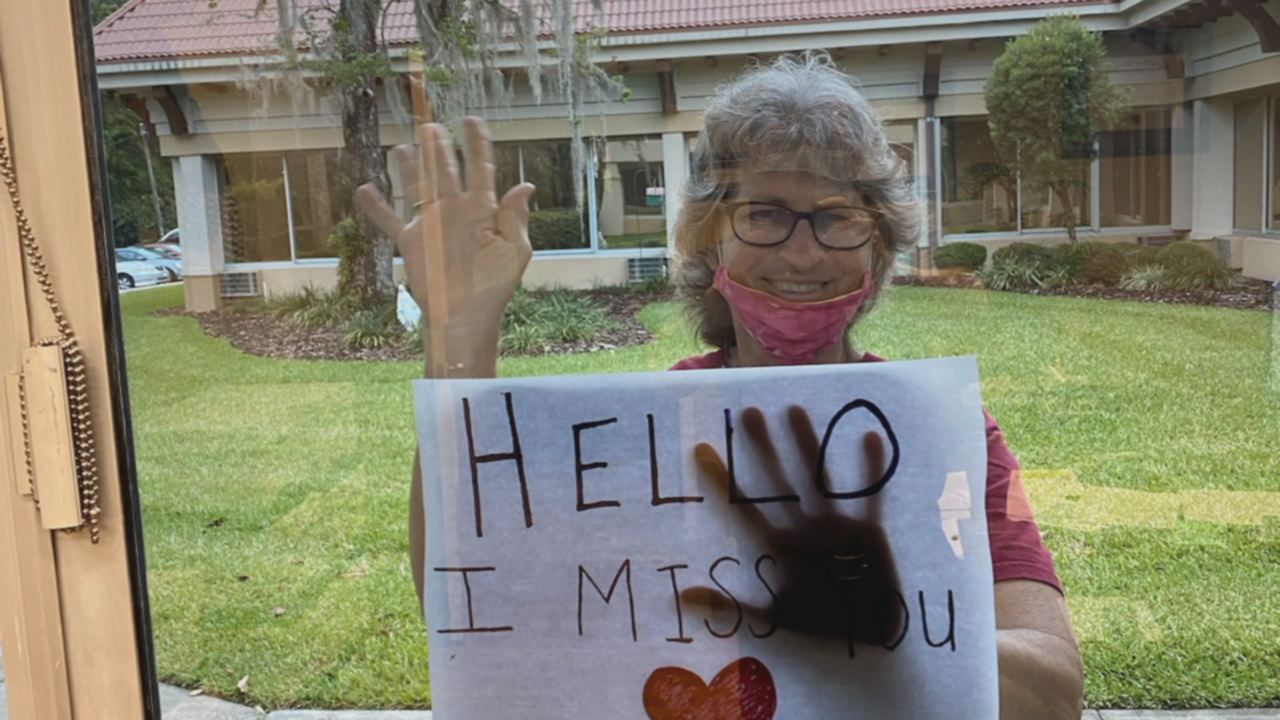 HELLO
I MISS YOU